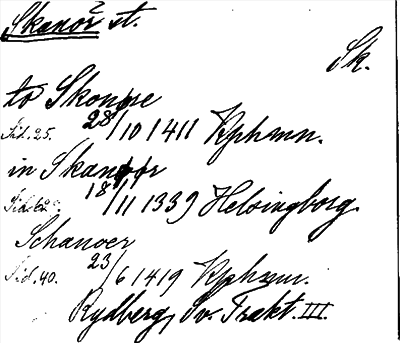 Skanör 2 st.
Sk.
to Skonøre
Sid. 25. 28/10 1411 Kphmn.
in Skanør
Sid. 62. 18/11 1339 Helsingborg.
Schanoer
Sid. 40. 23/6 1419 Kphmn.
Rydberg, Sv. Trakt. III.